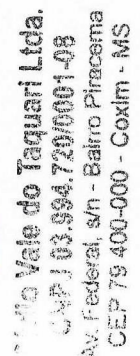 Vale do Taquari Ltda.
03.994.729/0001-08
Av. Federal, s/n - Bairro Piracema
CEP 79 400-000 - Coxim - MS